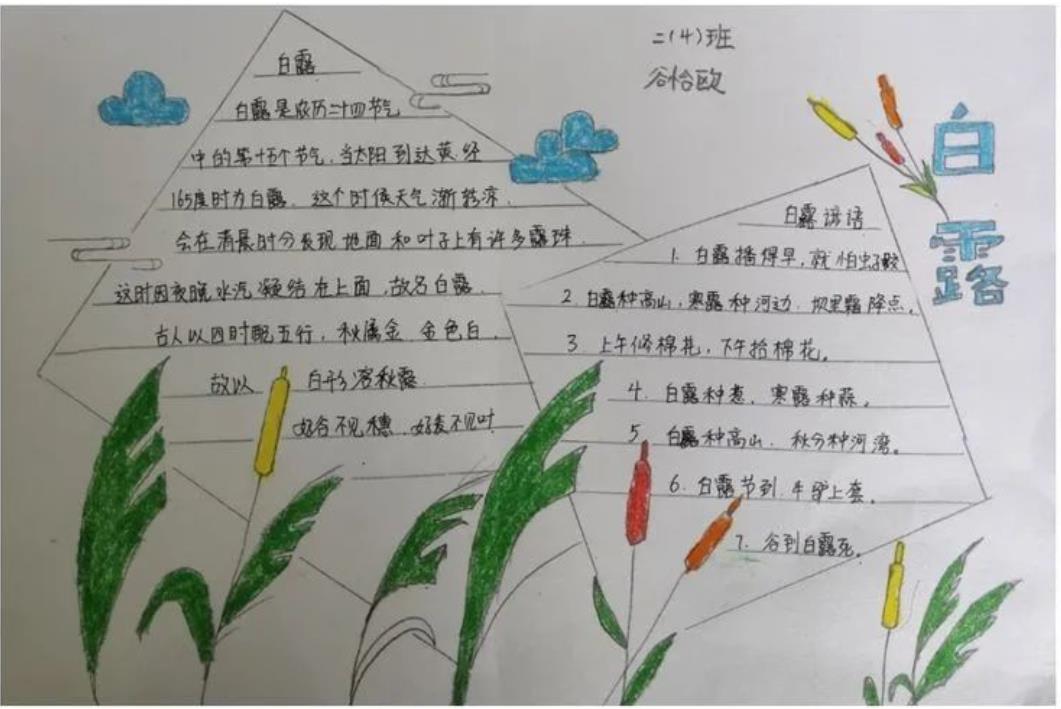 二(4)班
谷怡欧
白露
白露
白露是农历二十四节气
中的第十五个节气,当太阳到达黄经
165度时为白露.这个时候天气渐转凉.
会在清晨时分发现地面和叶子上有许多露珠.
这时因夜晚水汽凝结在上面,故名白露.
古人以四时配五行,秋属金.金色白.
故以 白形容秋露.
好谷不见穗.好麦不见叶
白露谚语
1. 白露播得早,就怕虫子咬
2. 白露种高山,寒露种河边.坝里霜降点。
3. 上午修棉花,下午拾棉花。
4. 白露种葱.寒露种蒜。
5 白露种高山.秋分种河湾。
6. 白露节到.牛驴上套。
7. 谷到白露死。